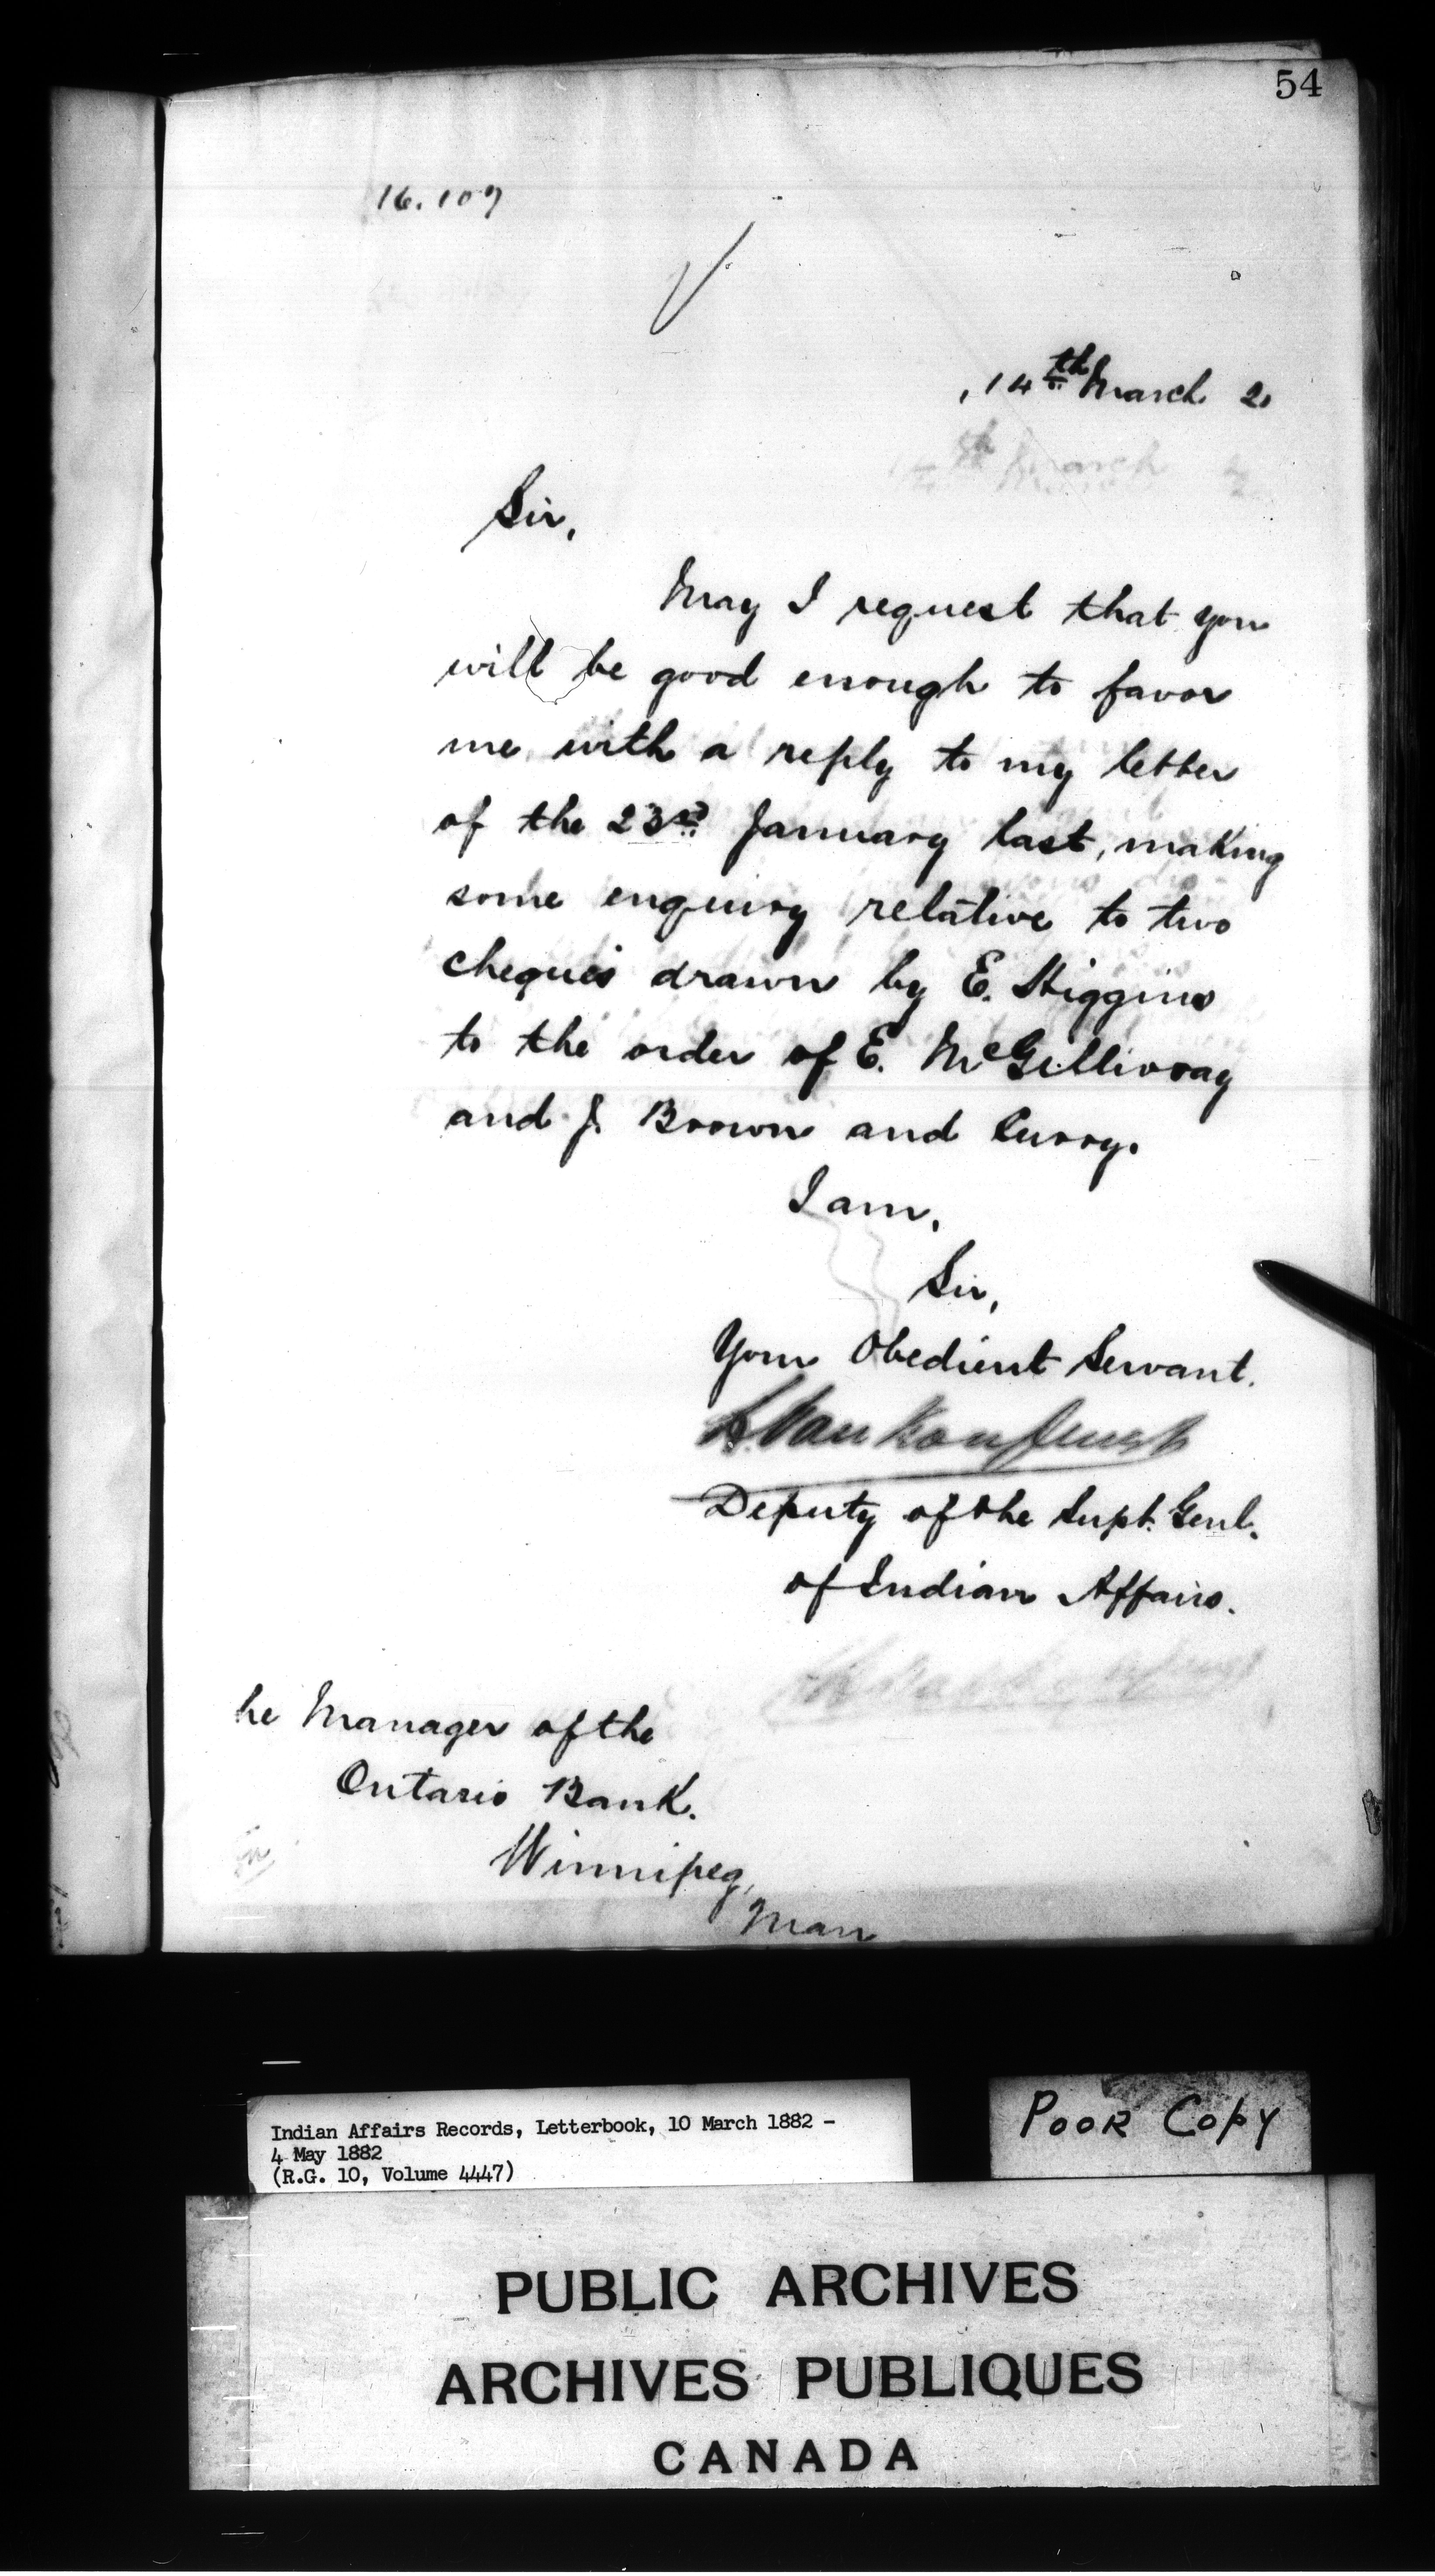 54
16.107
, 14th March 2
Sir,
May I request that you
will be good enough to favor
me with a reply to my letter
of the 23rd January last, making
some enquiry relative to two
cheques drawn by E. Higgins
to the order of E. McGillivray
and J. Brown and Curry.
I am,
Sir,
Your Obedient Servant.
L. VanKoughnet
Deputy of the Supt. Genl.
of Indian Affairs.
he Manager of the
Ontario Bank.
Winnipeg,
Man
Indian Affairs Records, Letterbook, 10 March 1882 -
4 May 1882
(R.G. 10, Volume 4447)
POOR COPY
PUBLIC ARCHIVES
ARCHIVES PUBLIQUES
CANADA